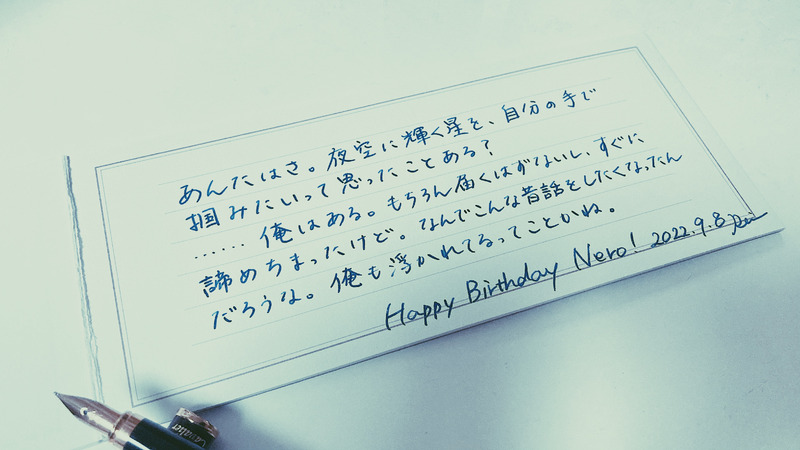 あんたはさ。夜空に輝く星を、自分の手で
掴みたいって思ったことある?
…… 俺はある。もちろん届くはずないし、すぐに
諦めちまったけど。なんでこんな昔話をしたくなったん
だろうな。俺も浮かれてるってことかね。
Happy Birthday Nero! 2022.9.8
Cavalier